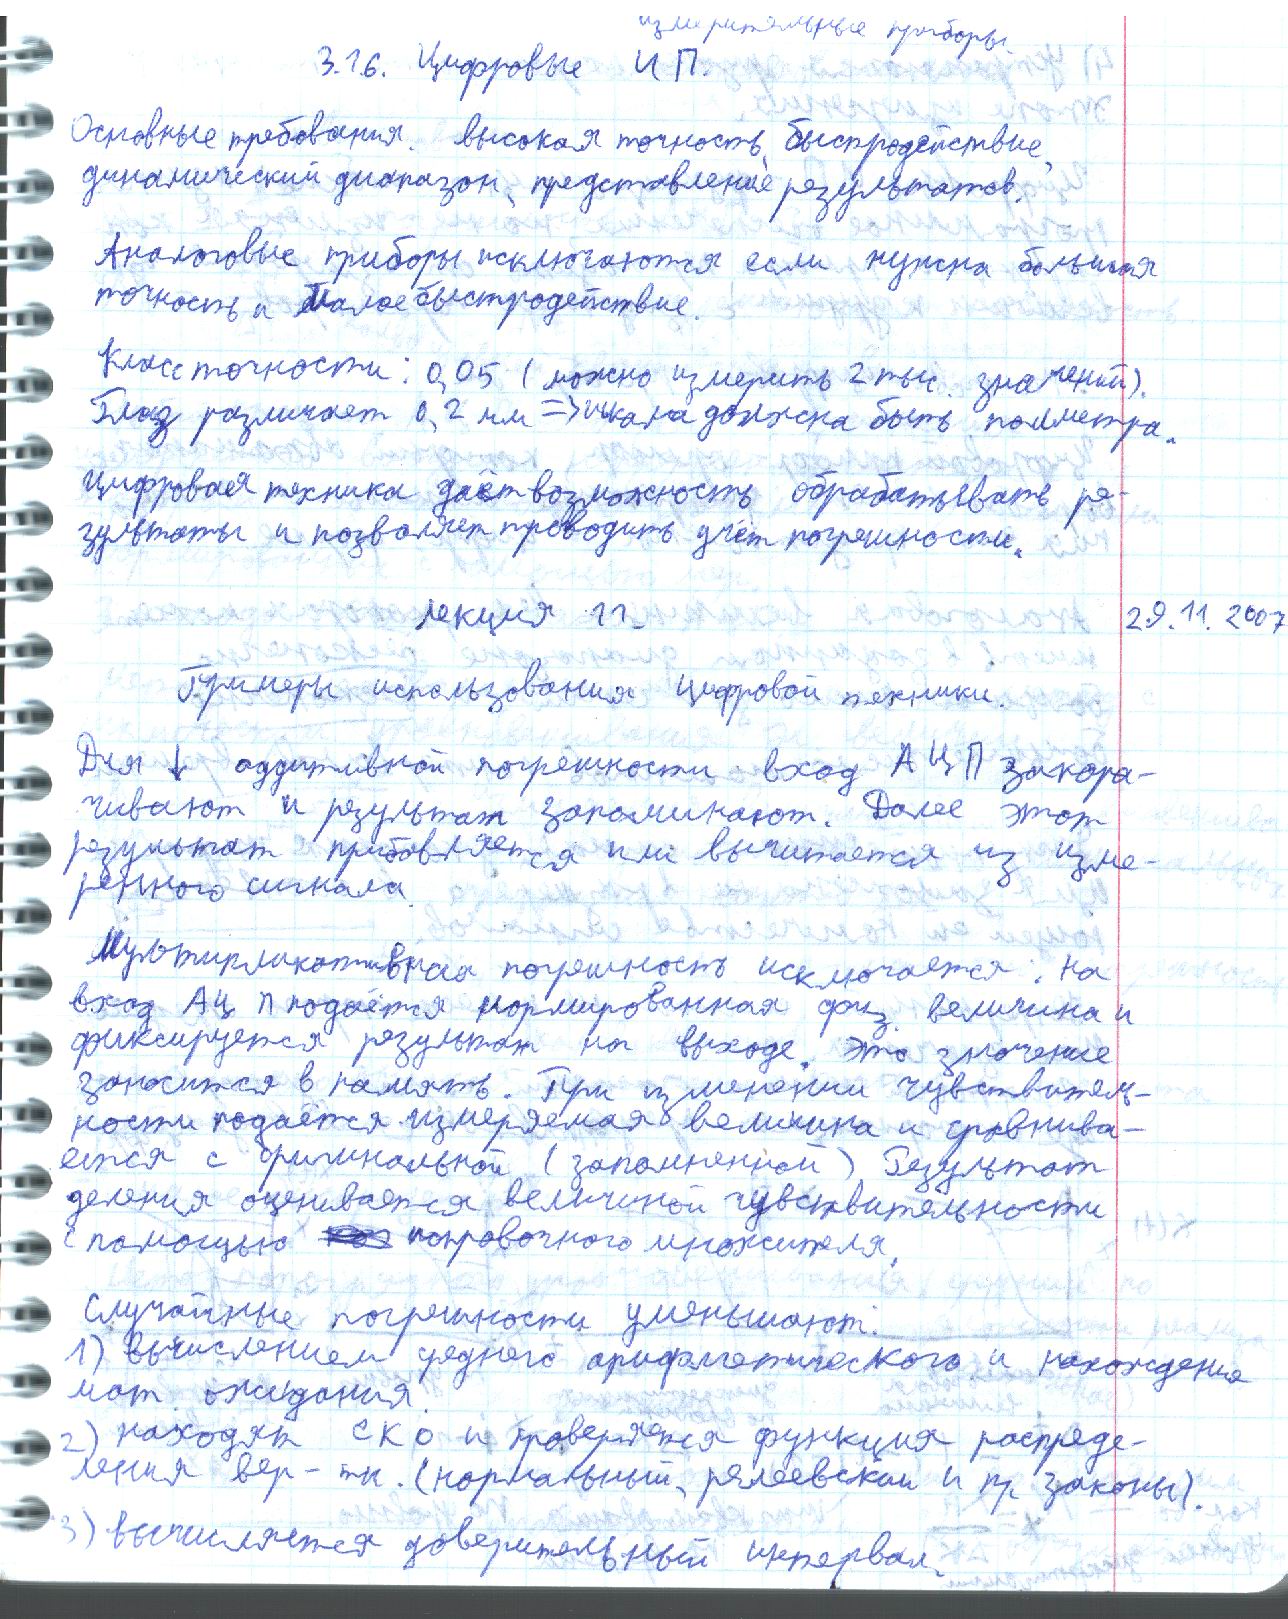 измерительные приборы.
3.16. Цифровые ИП.
Основные требования. высокая точность, быстродействие,
динамический диапазон, представление результатов.
Аналоговые приборы исключаются если нужна большая
точность и малое быстродействие.
Класс точности: 0,05 (можно измерить 2 тыс. значений).
Глаз различает 0,2 мм => шкала должна быть полметра.
Цифровая техника даёт возможность обрабатывать ре-
зультаты и позволяет проводить учёт погрешности.
Лекция 11. 29.11.2007
Примеры использования цифровой техники.
Для ↓ аддитивной погрешности вход АЦП закора-
чивают и результат запоминают. Далее этот
результат прибовляется или вычитается из изме-
ренного сигнала.
Мультипликативная погрешность исключается: На
вход АЦП подаётся нормированная физ. величина и
фиксируется результат на выходе. Это значение
заносится в память. При изменении чувствитель-
ности подаётся измеряемая величина и сравнива-
ется с оригинальной (запомненной) Результат
деления оценивается величиной чувствительности
с помощью поправочного множителя.
Случайные погрешности уменьшают:
1) вычислением среднего арифметического и нахождения
мат. ожидания.
2) находят СКО и проверяется функция распреде-
ления вер-ти. (нормальный, релеевский и пр законы).
3) вычисляется доверительный интервал.